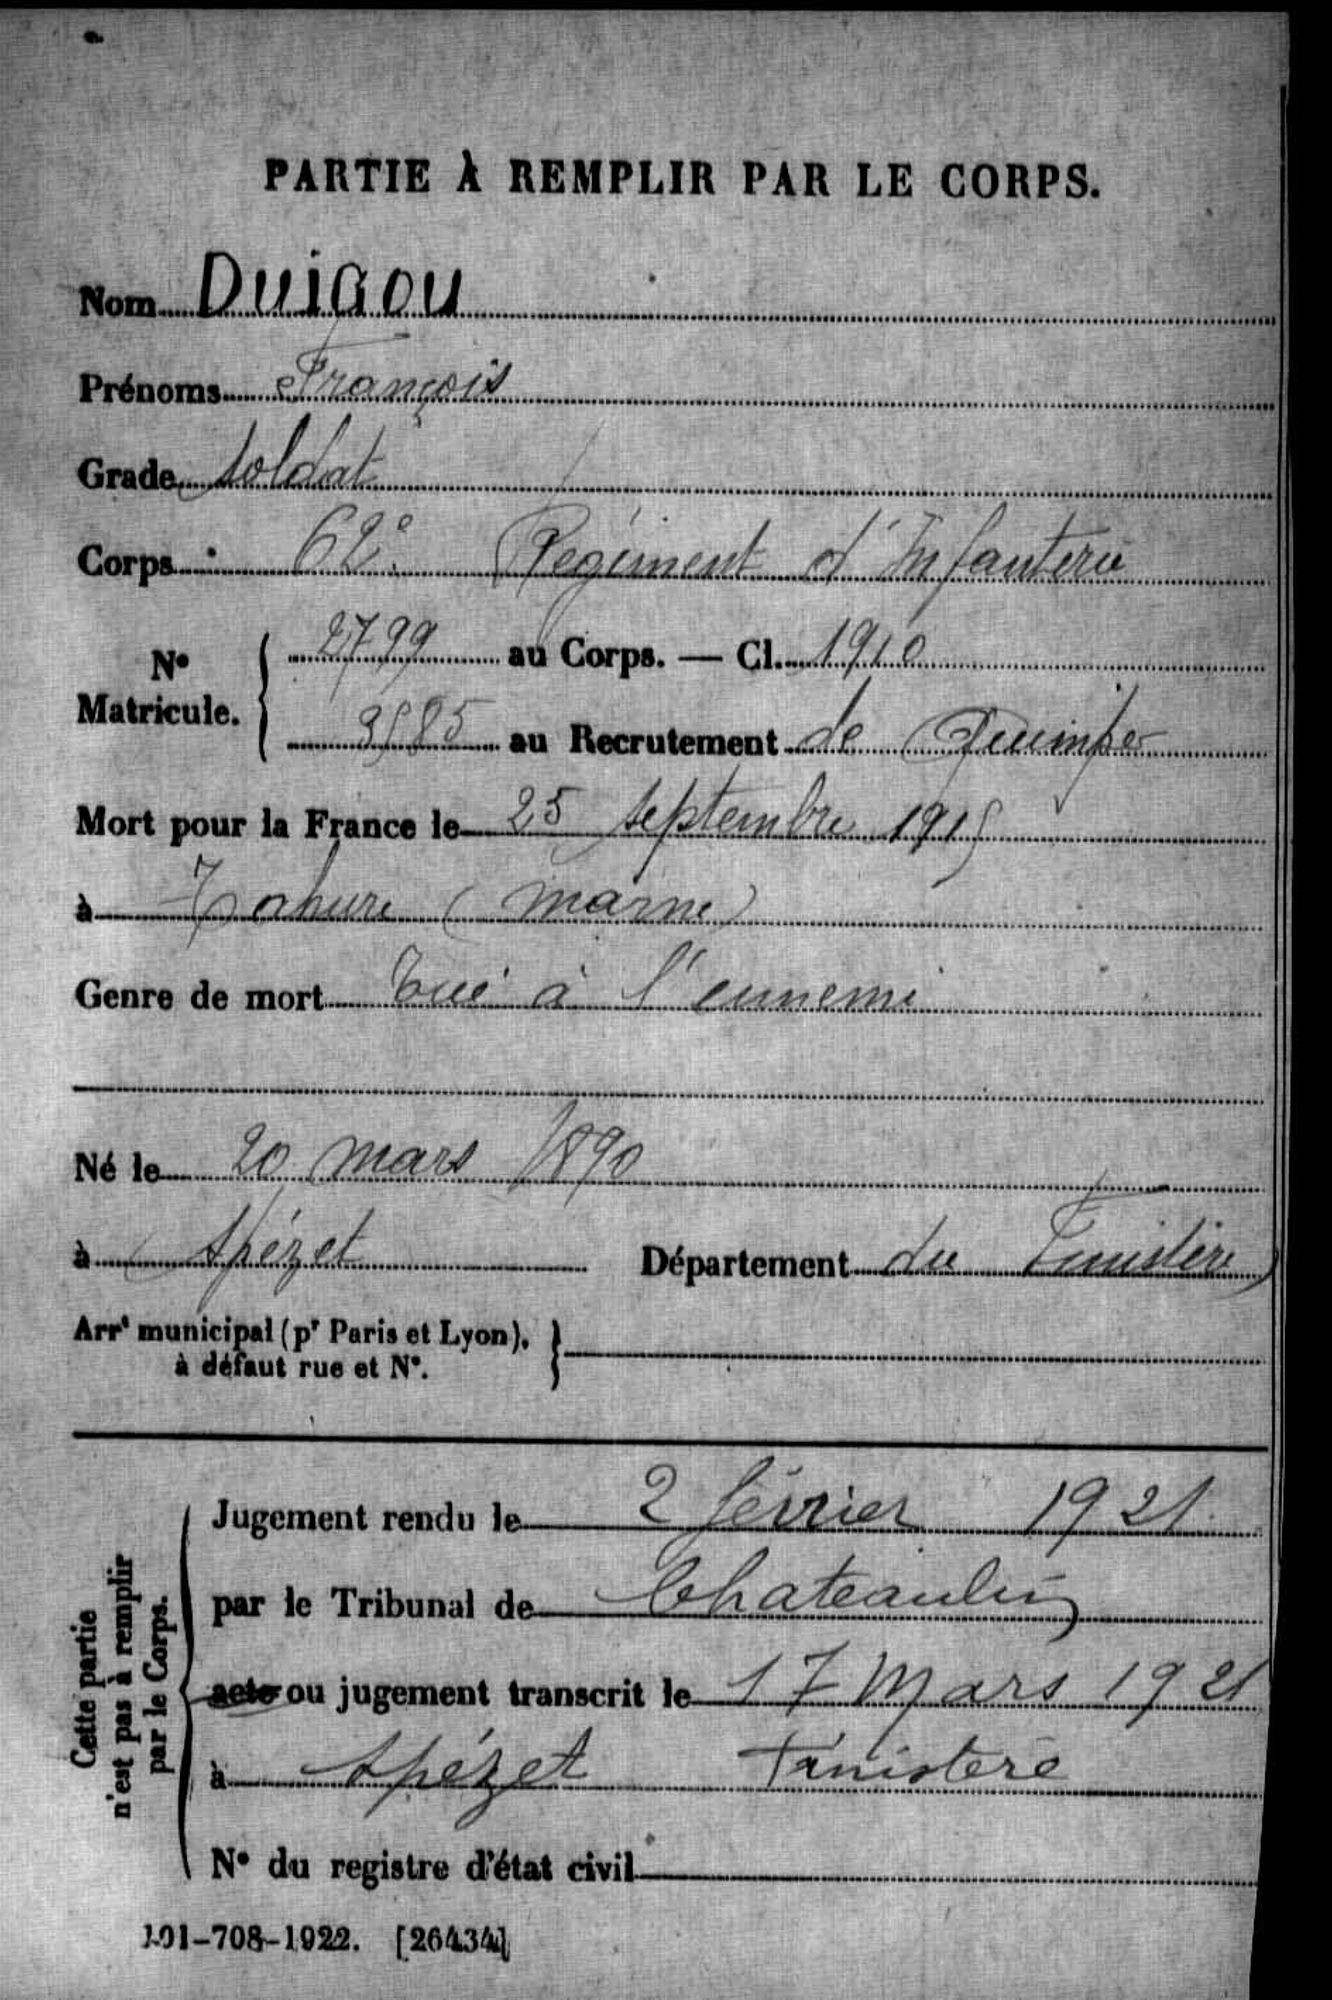 PARTIE À REMPLIR PAR LE CORPS.
Nom Duigou
Prénoms François
Grade soldat
Corps 62e Régiment d'Infanterie
No Matricule. 2799 au Corps. — Cl. 1910
3585 au Recrutement de Quimper
Mort pour la France le 25 septembre 1915
à Tahure (Marne)
Genre de mort Tué à l'ennemi
Né le 20 mars 1890
à Spézet Département du Finistère
Arrt municipal (pr Paris et Lyon),
à défaut rue et No.
Cette partie
n'est pas à remplir
par le Corps.
Jugement rendu le 2 février 1921
par le Tribunal de Chateaulin
acte ou jugement transcrit le 17 Mars 1921
à Spézet Finistère
No du registre d'état civil
101-708-1922. [26434]